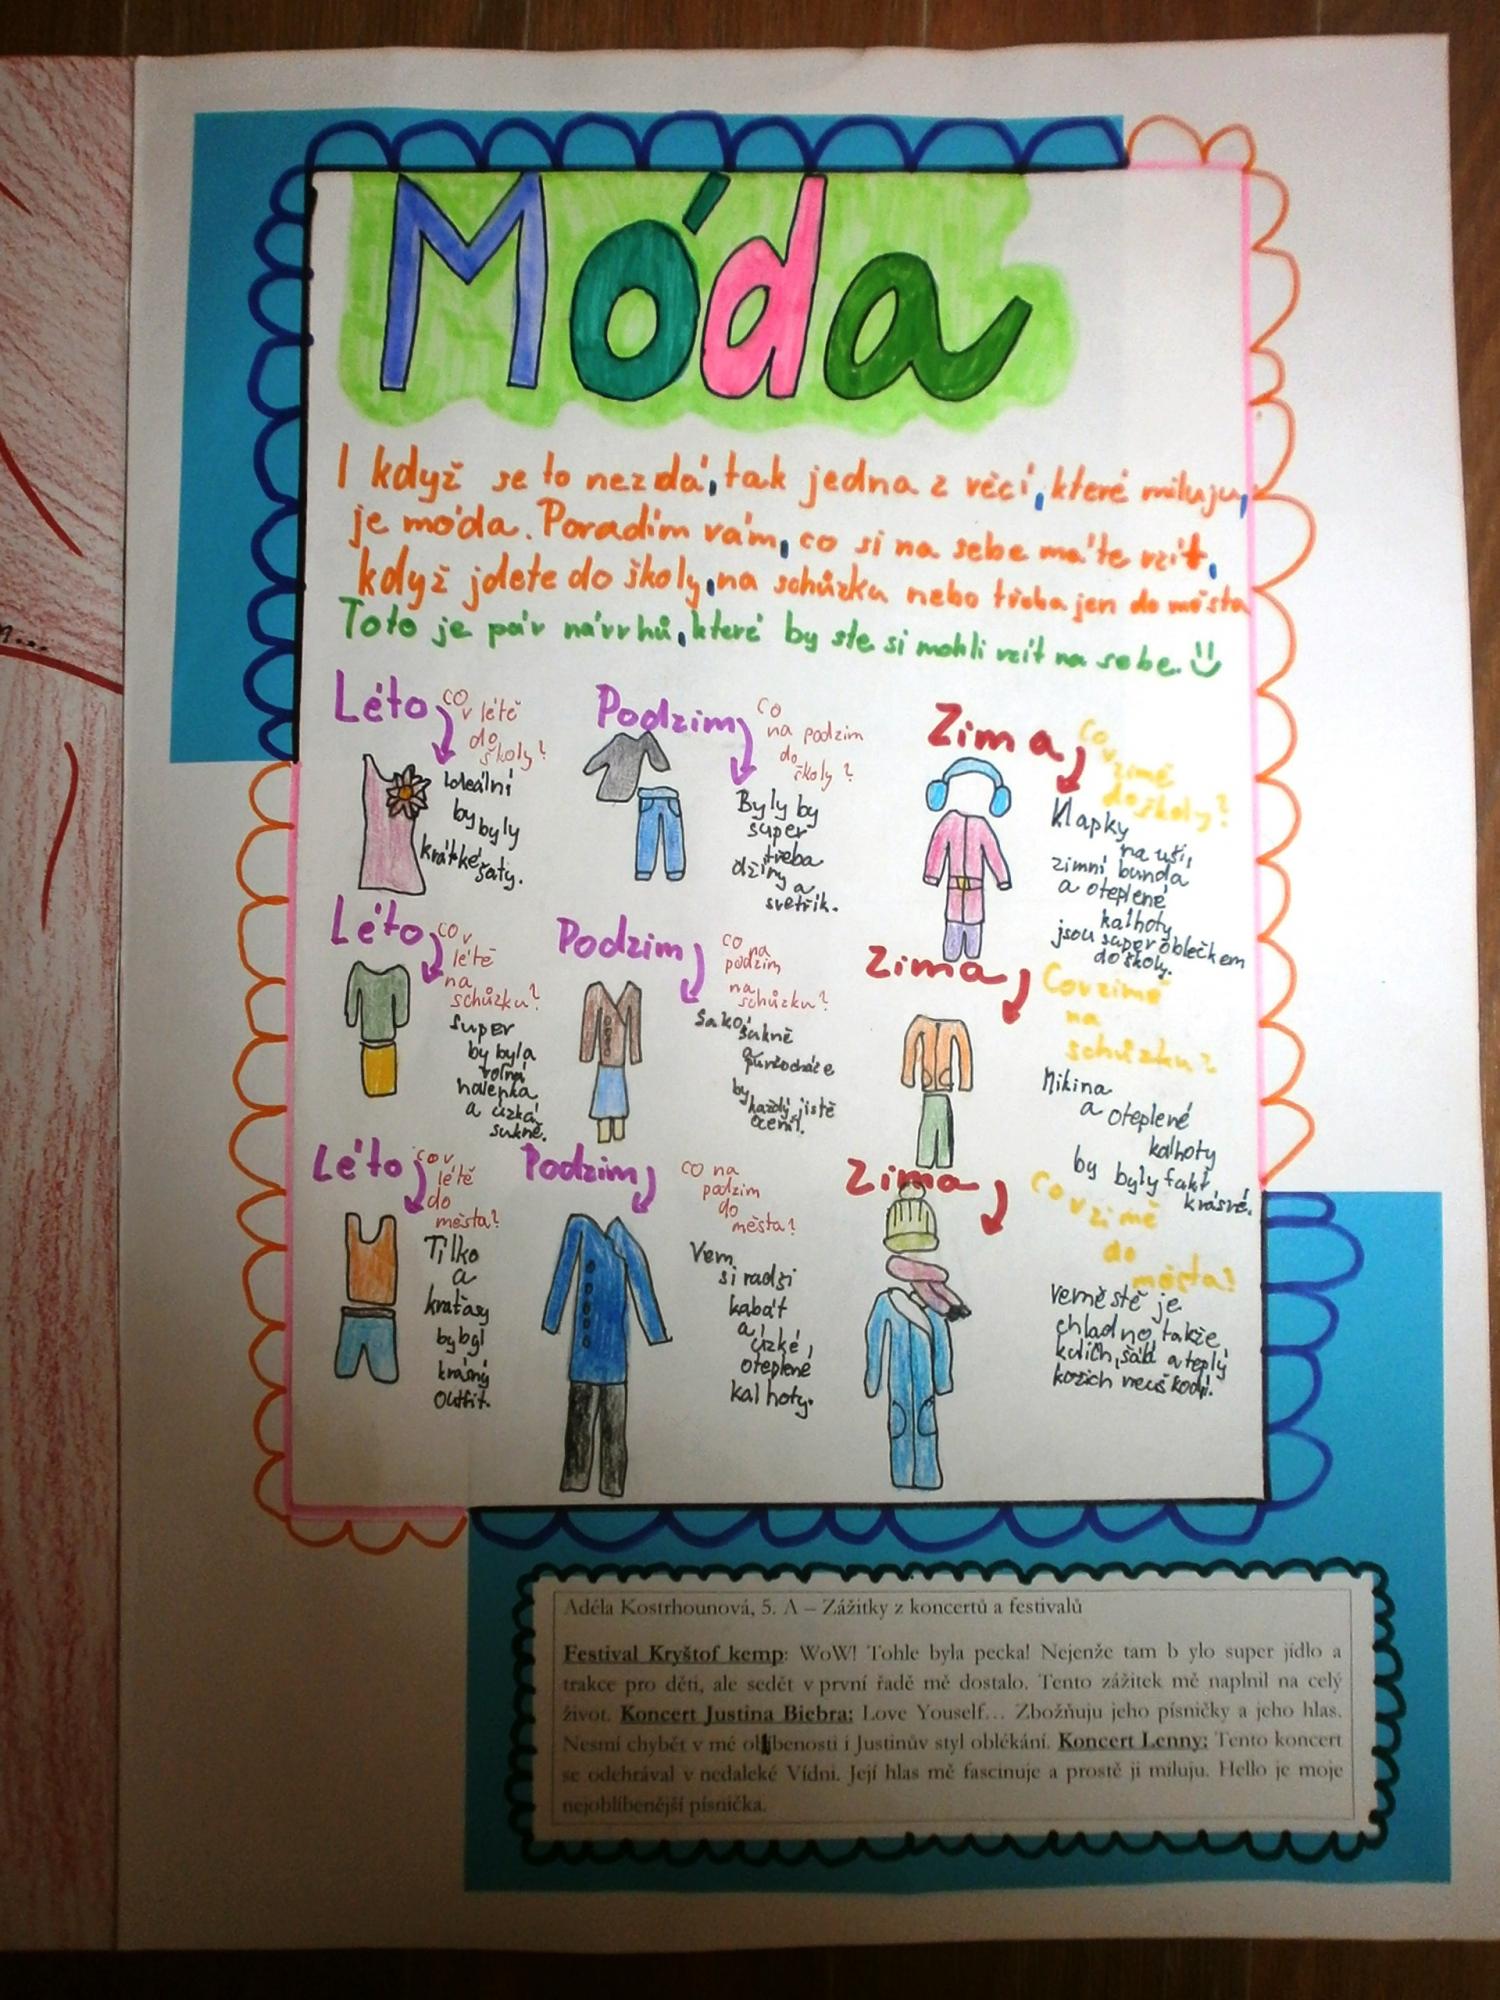 Móda
I když se to nezdá, tak jedna z věcí, které miluju,
je móda. Poradím vám, co si na sebe máte vzít,
když jdete do školy, na schůzku nebo třeba jen do města
Toto je pár návrhů, které by ste si mohli vzít na sebe.
Léto
co
v létě
do
školy?
Ideální
by byly
krátké
šaty.
Podzim
co
na podzim
do
školy?
Byly by
super
třeba
džíny a
svetřík.
Zima
Co v
zimě
do školy?
Klapky
na uši,
zimní bunda
a oteplené
kalhoty
jsou super oblečkem
do školy.
Léto
co v
létě
na
schůzku?
super
by byla
volná
halenka
a úzká
sukně.
Podzim
co na
podzim
na
schůzku?
Sako,
sukně
a
punčocháče
by
každý jistě
ocenil.
Zima
Co v zimě
na
schůzku?
Mikina
a oteplené
kalhoty
by byly fakt
krásné.
Léto
co v
létě
do
města?
Tílko
a
kraťasy
by byl
krásný
outfit.
Podzim
co na
podzim
do
města?
Vem
si radši
kabát
a úzké,
oteplené
kalhoty.
Zima
Co v zimě
do
města?
Ve městě je
chladno, takže
kulich, šál a teplý
kožich neuškodí.
n...
Adéla Kostrhounová, 5. A – Zážitky z koncertů a festivalů
Festival Kryštof kemp: WoW! Tohle byla pecka! Nejenže tam b ylo super jídlo a
trakce pro děti, ale sedět v první řadě mě dostalo. Tento zážitek mě naplnil na celý
život. Koncert Justina Biebra: Love Youself… Zbožňuju jeho písničky a jeho hlas.
Nesmí chybět v mé oblíbenosti i Justinův styl oblékání. Koncert Lenny: Tento koncert
se odehrával v nedaleké Vídni. Její hlas mě fascinuje a prostě ji miluju. Hello je moje
nejoblíbenější písnička.